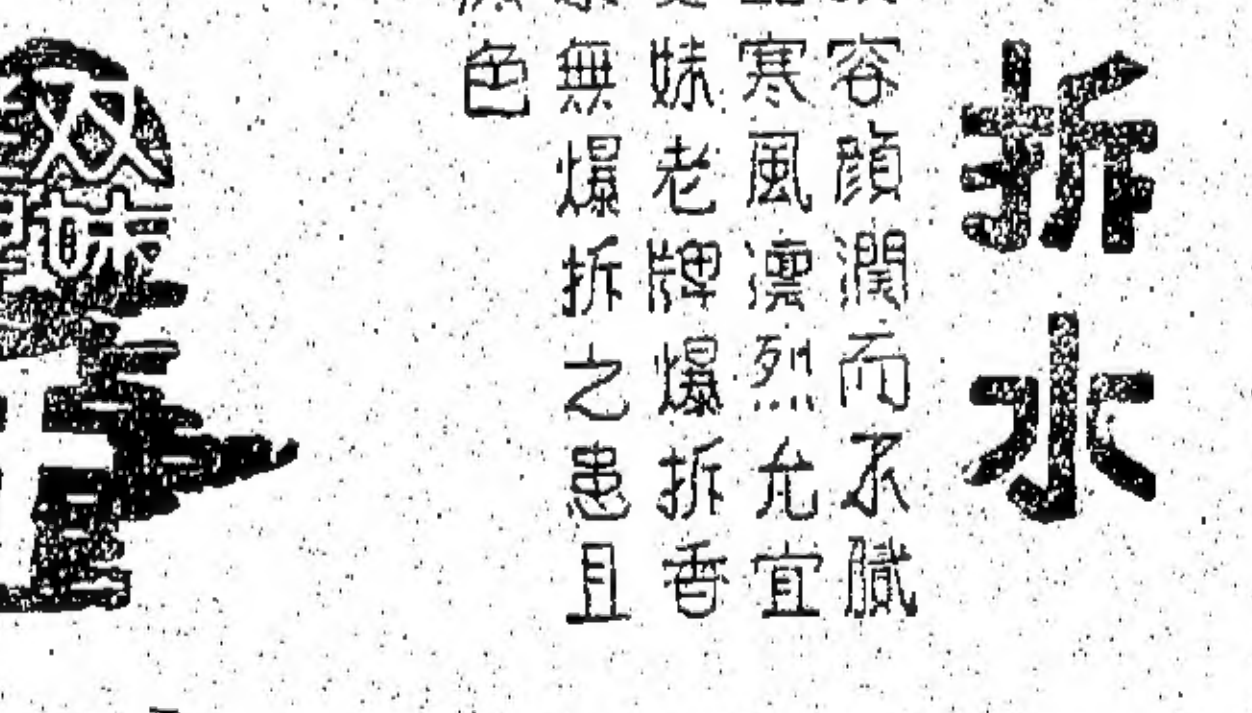 拆水
容顔潤而不膩
寒風凛烈允宜
妹老牌爆拆香
無爆拆之患且
色
双
妹